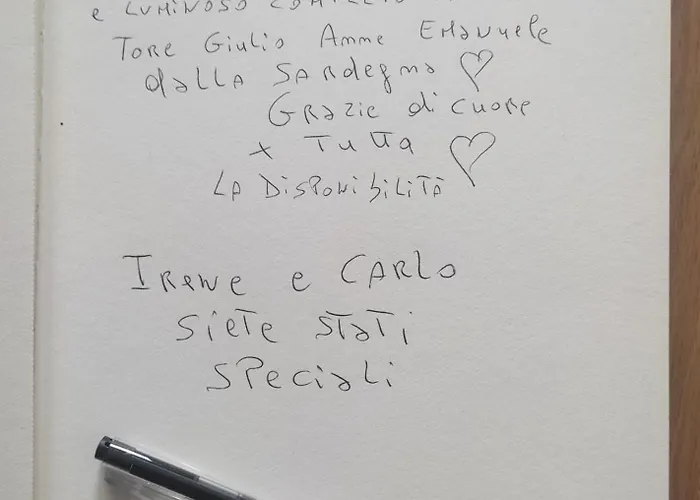 e LUMINOSO
TORE GIULIO ANNA EMANUELE
dALLA SARdegna
GRAZIE di CUORE
x TUTTA
LA DISPONIBILITÀ
IRENE e CARLO
SIETE STATI
SPECIALI